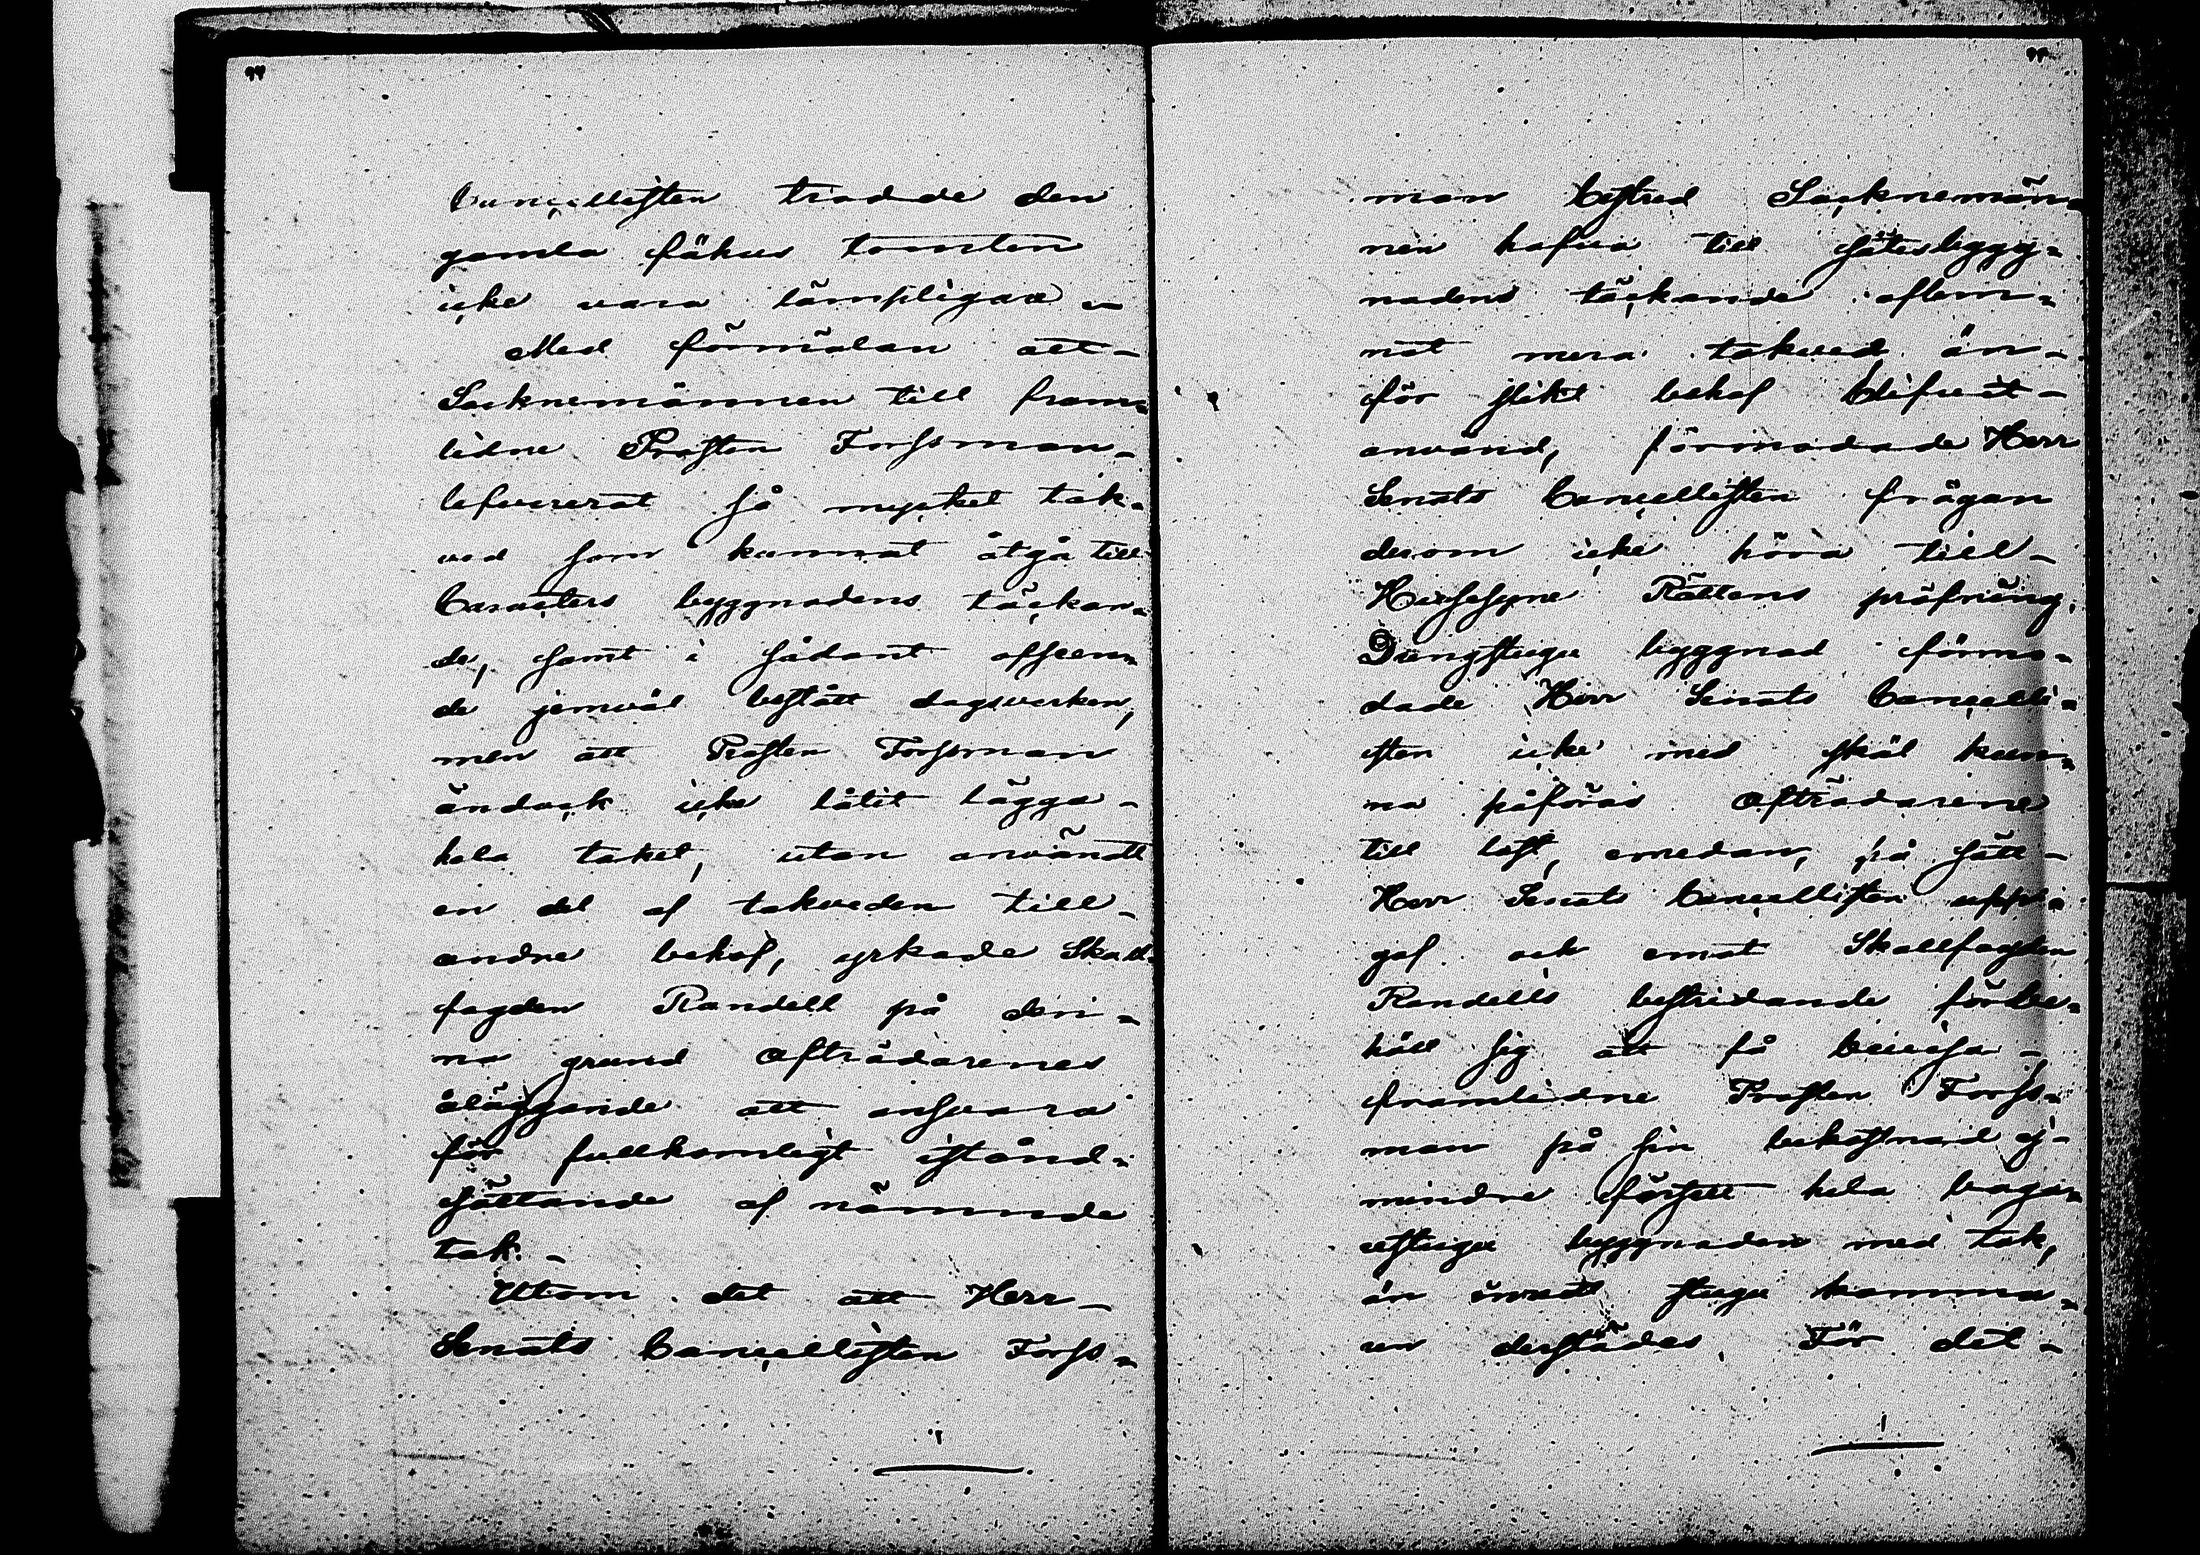 Cancellisten trodde den
gamla fähus tomten
icke vara lämpligare –
Med förmälan att –
Socknemännen till fram-
lidne Prosten Forssman –
lefvererat så mycket tak-
ved som kunnat åtgå till
Caracters byggnadens täckan-
de, samt i sådant afseen-
de jemväl bestått dagsverken,
men att Prosten Forssman
ändock icke låtit lägga –
hela taket, utan användt
en del af takveden till –
andre behof, yrkade Skall-
fogden Randell på den-
na grund Afträdarenes
åläggande att ansvara
för fullkomligt istånd-
sättande af nämnde
tak. –
Utom det att Herr –
Senats Cancellisten Forss-
man bestred Socknemän-
nen hafva till sätesbygg-
nadens täckande aflem-
nat mera takved än –
för slikt behof blifvit –
använd, förmodade Herr
Senats Cancellisten frågan
derom icke höra till –
Hussyne Rättens pröfning.
byggnad förmo-
dade Herr Senats Cancelli-
sten icke med skäl kun-
na påföras Afträdarene
till last, emedan, på sätt –
Herr Senats Cancellisten upp-
gaf och emot Skallfogden
Randells bestridande förbe-
höll sig att få bevisa –
framlidne Prosten Forss-
man på sin bekostnad ej –
mindre försett hela bagar-
stugu byggnaden med tak,
än inredt stugu kamma-
ren derstädes. För det –